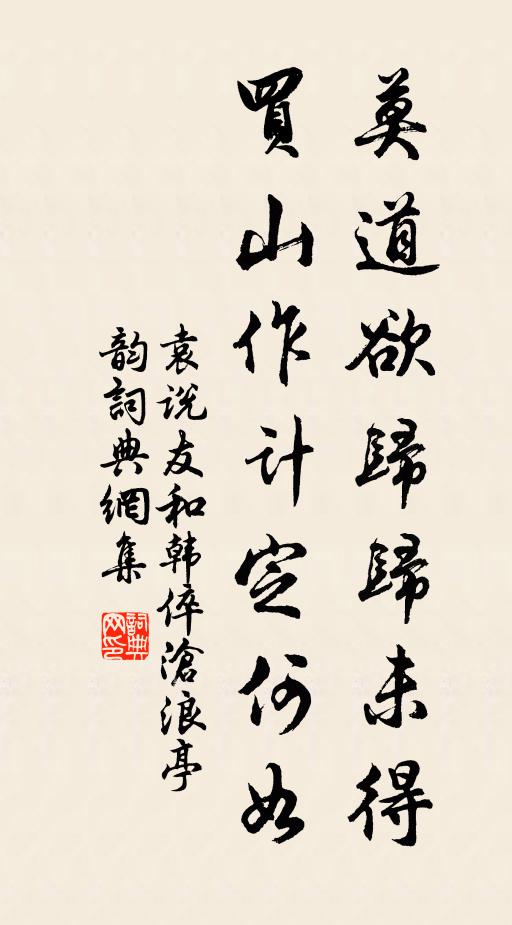 莫道欲歸歸未得
買山作计定何如
袁说友和韩倅滄浪亭
韵詞典網集
詞典网印